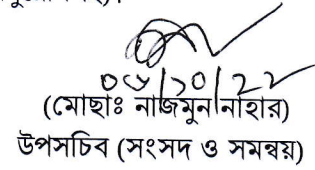 ০৬/১০/২২
(মোছাঃ নাজমুন নাহার)
উপসচিব (সংসদ ও সমন্বয়)